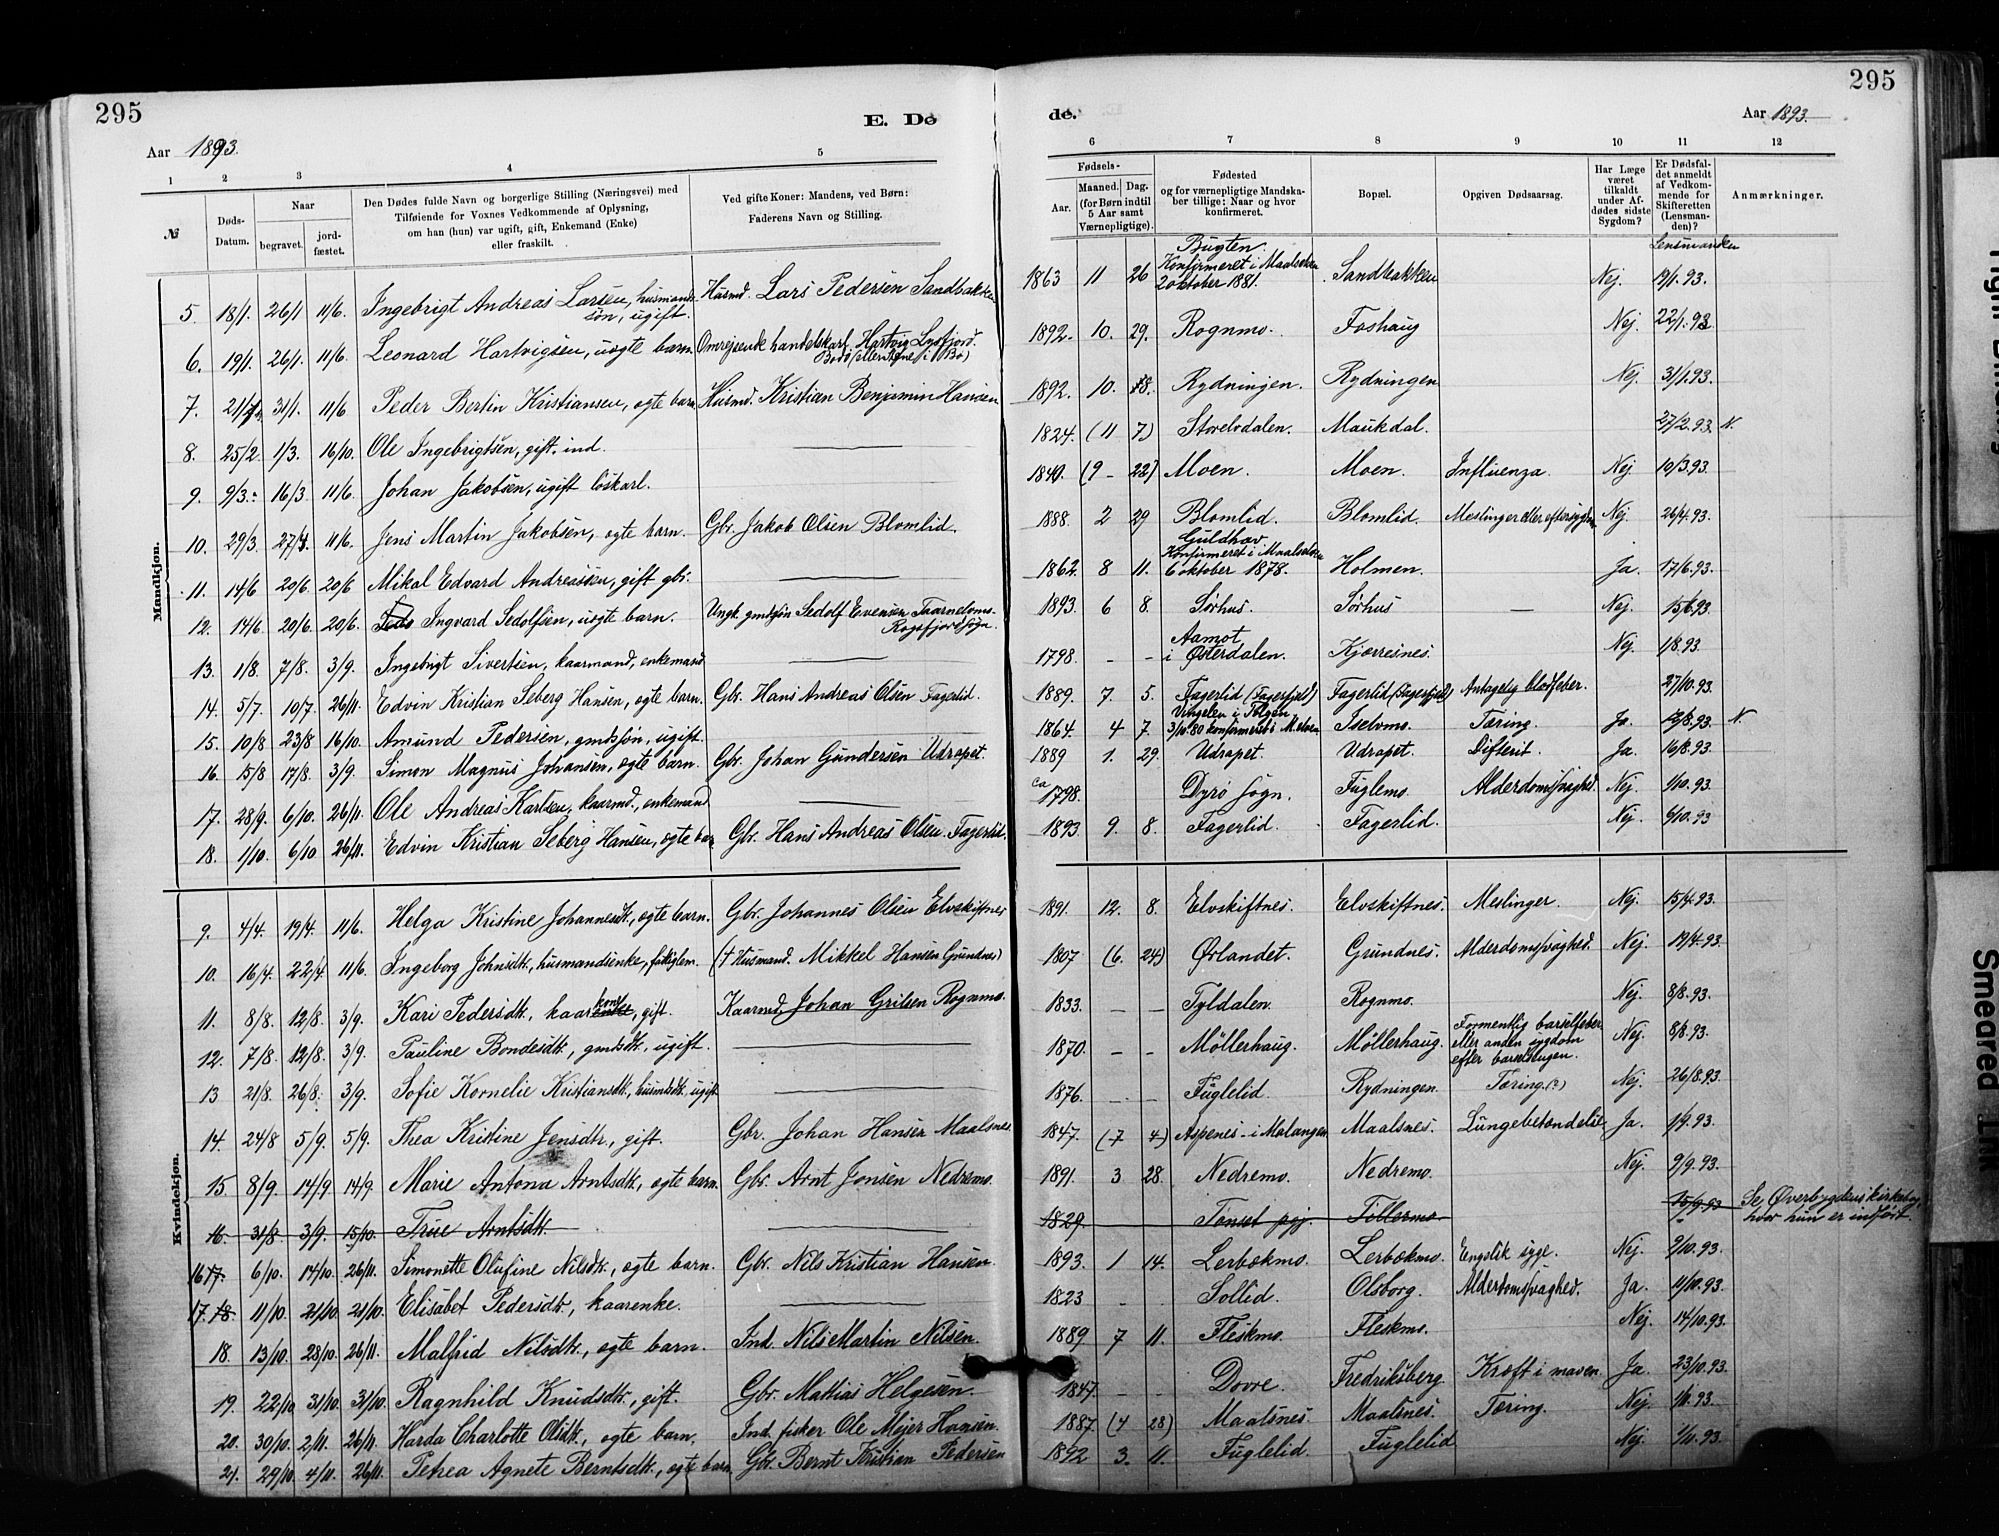 295
E. Dø
Aar 1893.
1 2 3 4 5
№
Døds-Datum.
Naar
begravet.
jord-fæstet.
Den Dødes fulde Navn og borgerlige Stilling (Næringsvei) med
Tilføiende for Voxnes Vedkommende af Oplysning,
om han (hun) var ugift, gift, Enkemand (Enke)
eller fraskilt.
Ved gifte Koner: Mandens, ved Børn:
Faderens Navn og Stilling.
Mandkjøn.
5. 18/1. 26/1 11/6. Ingebrigt Andreas Larsen, husmands-søn, ugift. Husmd. Lars Pedersen Sandbakken
6. 19/1. 26/1. 11/6. Leonard Hartvigsen, uægte barn. Omreisende handelskarl Hartvig Lysfjord.
7. 31/1. 11/6 Peder Berlin Kristiansen, ægte barn Husmd. Kristian Benjamin Hansen
8. 25/2. 1/3. 16/10. Ole Ingebrigtsen, gift. ind.
9. 9/3. 16/3. 11/6. Johan Jakobsen, ugift løskarl.
10. 29/3. 27/4 11/6. Jens Martin Jakobsen, ægte barn. Gbr. Jakob Olsen Blomlid.
11. 14/6 20/6. 20/6. Mikal Edvard Andreassen, gift gbr.
12. 14/6. 20/6. 20/6. Ingvard Sedolfsen, uægte barn. Ungk. gmdsøn Sedolf Evensen
13. 1/8. 7/8. 3/9. Ingebrigt Sivertsen, kaarmand, enkemand
14. 5/7. 10/7. 26/11. Edvin Kristian Seberg Hansen, ægte barn. Gbr. Hans Andreas Olsen Fagerlid.
15. 10/8 23/8 16/10. Amund Pedersen, gmdsøn, ugift.
16. 15/8 17/8. 3/9. Simon Magnus Johansen, ægte barn. Gbr. Johan Gundersen Udrapet.
17. 28/9. 6/10. 26/11. Ole Andreas Karlsen, kaarmd., enkemand
18. 1/10. 6/10 26/11. Edvin Kristian Seberg Hansen, ægte barn Gbr. Hans Andreas Olsen Fagerlid.
Kvindekjøn.
9. 4/4. 19/4. 11/6. Helga Kristine Johannesdtr., ægte barn. Gbr. Johannes Olsen Elvskiftnes
10. 16/4. 22/4. 11/6. Ingeborg Johnsdtr., husmandsenke, fattiglem. († Husmand. Mikkel Hansen Grundnes)
11. 8/8. 12/8. 3/9. Kari Pedersdtr., kaarkone, gift. Kaarmd. Johan Grilsen Rognmo.
12. 7/8. 12/8. 3/9. Pauline Bondesdtr., gmdsdtr., ugift.
13 21/8. 26/8. 3/9. Sofie Kornelie Kristiansdtr., husmdsdtr. ugift
14. 24/8 5/9. 5/9. Thea Kristine Jensdtr., gift. Gbr. Johan Hansen Maalsnes.
15. 8/9. 14/9. 14/9. Marie Antona Arntsdtr., ægte barn. Gbr. Arnt Jonsen Nedremo.
16. 31/8. 3/9. 15/10. True Arntsdtr.
16 17. 6/10. 14/10. 26/11. Simonette Olufine Nilsdtr., ægte barn. Gbr. Nils Kristian Hansen.
17. 18. 11/10. 21/10. 21/10. Elisabet Pedersdtr., kaarenke.
18. 13/10. 28/10. 26/11. Malfrid Nilsdtr., ægte barn. Ind. Nils Martin Nilsen.
19. 22/10 31/10. 31/10. Ragnhild Knudsdtr., gift. Gbr. Mathias Helgesen
20. 30/10. 2/11. 26/11. Harda Charlotte Olsdtr., ægte barn. Ind. fisker Ole Mejer Hansen.
21. 29/10. 4/11. 26/11. Petrea Agnete Berntsdtr., ægte barn. Gbr. Bernt Kristian Pedersen
295
de.
Aar 1893.
6 7 8 9 10 11 12
Fødsels-
Aar.
Maaned. Dag.
(for Børn indtil
5 Aar samt
Værnepligtige).
Fødested
og for værnepligtige Mandska-
ber tillige: Naar og hvor
konfirmeret.
Bopæl.
Opgiven Dødsaarsag.
Har Læge
været
tilkaldt
under Af-
dødes sidste
Sygdom?
Er Dødsfal-
det anmeldt
af Vedkom-
mende for
Skifteretten
(Lensman-
den)?
Anmærkninger.
Lensmanden
1863 11 26 Bugten. Konfirmeret i Maalselven 2 oktober 1881. Sandbakken Nej. 19/1.93.
1892. 10. 29. Rognmo. Foshaug Nej. 22/1.93.
1892. 10. 18. Rydningen. Rydningen Nej. 31/1.93.
1824. (11 7.) Storelvdalen. Maukdal. 27/2.93. N.
1840. (9 – 22) Moen. Moen. Influenza. Nej. 10/3.93.
1888. 2 29 Blomlid. Blomlid. Meslinger eller eftersygdom Nej. 26/4.93.
1862. 8 11. Guldhav. Konfirmeret i Maalselven 6 oktober 1878. Holmen. Ja. 17/6.93.
1893. 6 8. Sørhus. Sørhus — Nej. 15/6.93
1798. – – Aamot i Østerdalen. Kjærresnes. Nej. 1/8.93.
1889. 7. 5. Fagerlid (Fagerfjeld) Fagerlid (Fagerfjeld) Antagelig blodfeber. 27/10.93.
1864. 4 7. Vingelen i Tolgen 3/10.80 konfirmeret i M.elven Iselvmo. Tæring. Ja. 12/8.93. N.
1889 1. 29. Udrapet. Udrapet. Difterit. Ja. 16/8.93.
ca 1798. Dyrø sogn. Fuglemo. Alderdomssvaghed. Nej. 1/10.93.
1893. 9. 8. Fagerlid. Fagerlid. Nej. 6/10.93
1891. 12. 8. Elvskiftnes. Elvskiftnes. Meslinger. Nej. 15/4.93.
1807 (6. 24) Ørlandet. Grundnes. Alderdomssvaghed. Nej. 19/4.93.
1833. – – Tyldalen. Rognmo. Nej. 8/8.93.
1870. – – Møllerhaug. Møllerhaug. Formentlig barselfeber eller anden sygdom efter barselsengen. Nej. 8/8.93.
1876. – – Fuglelid. Rydningen. Tæring(?) Nej. 26/8.93.
1847. (7 4) Aspenes i Malangen Maalsnes. Lungebetændelse Ja. 1/9.93.
1891. 3 28. Nedremo. Nedremo. Nej. 9/9.93.
1829. Tønset pgj. Tollermo. 15/9.93 Se Øverbygdens kirkebog, hvor hun er indført.
1893. 1 14. Lerbækmo. Lerbækmo. Engelsk syge. Nej. 9/10.93.
1823 – – Sollid. Olsborg. Alderdomssvaghed. Ja. 11/10.93.
1889 7 11. Fleskmo. Fleskmo. Nej. 14/10.93.
1847. – – Dovre. Fredriksberg Kræft i maven. Ja. 23/10.93.
1887. (4 28) Maalsnes. Maalsnes. Tæring. Nej. 1/11.93.
1892 3. 11. Fuglelid. Fuglelid Nej. 1/11.93.
Tight Binding
Smeared Ink